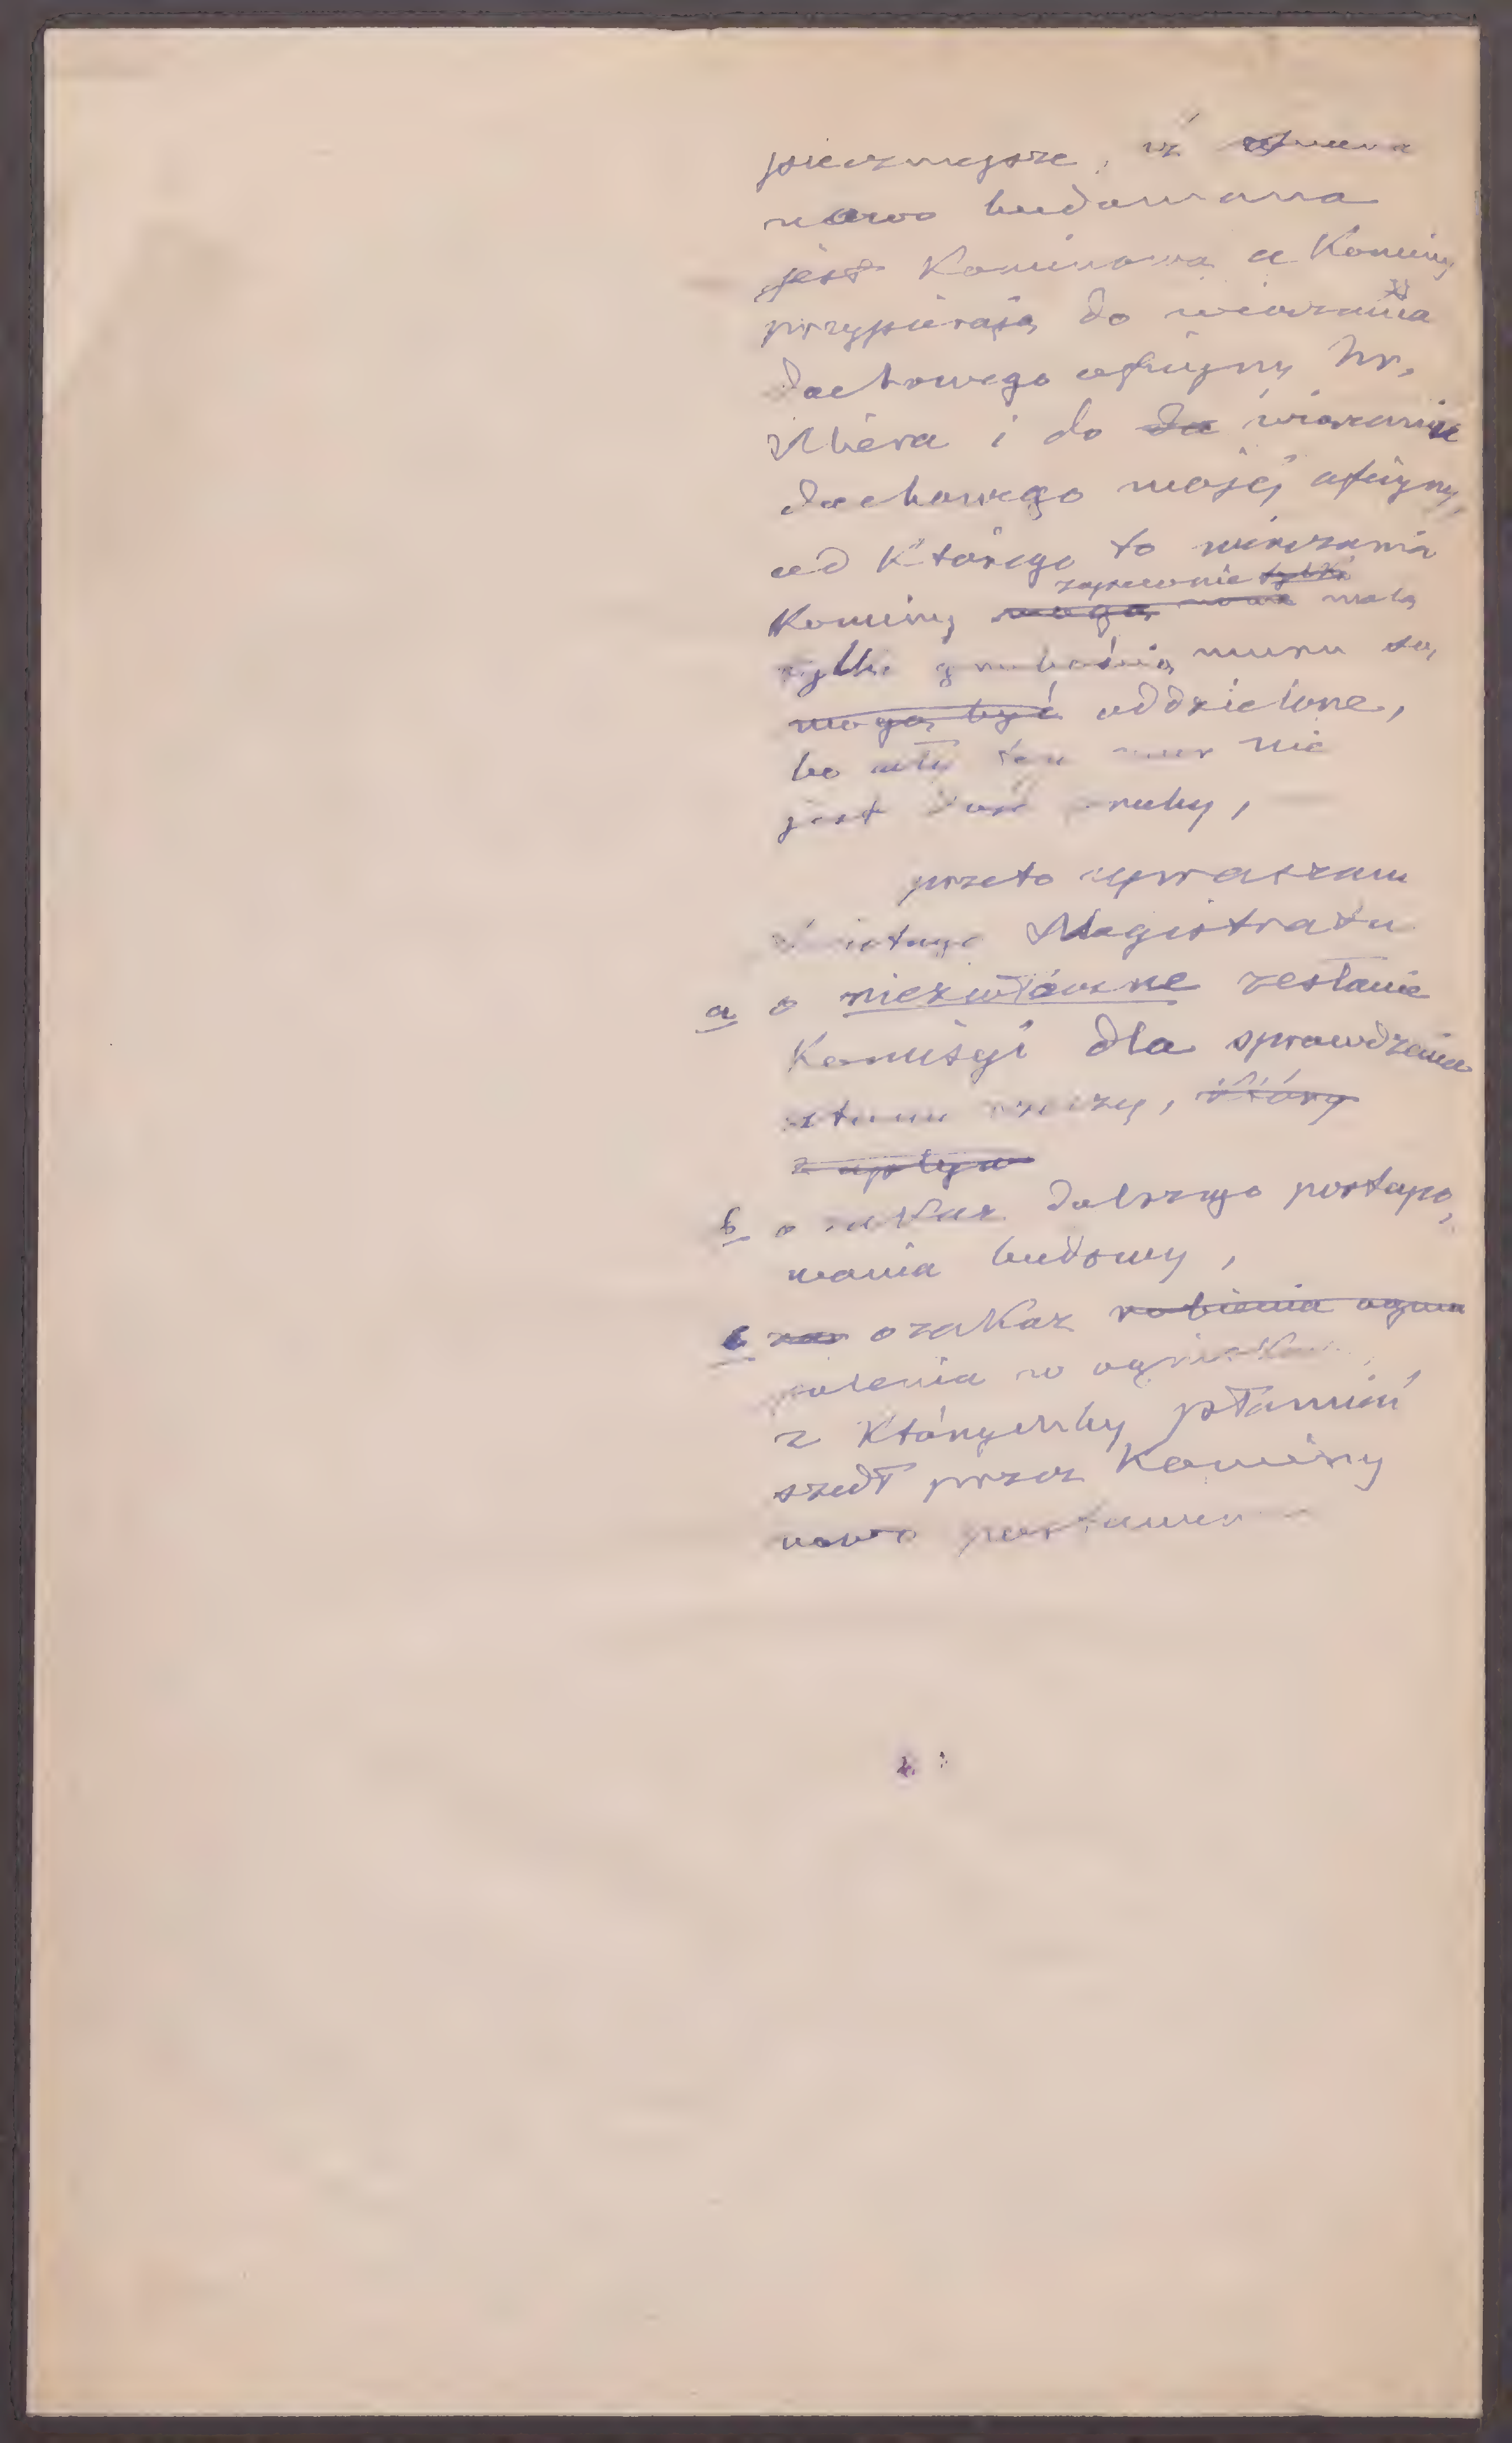 pieczniejsze, iż ściana
nowo budowana
jest Kominowa a Kominy
przypierają do wiązania
dachowego oficyny Hr.
Miera i do da wiązania
dachowego mojej oficyny,
od Którego to wiązania
zapewnie tylko
Kominy mogą nowe małą
tylko grubością muru są
mogą być oddzielone,
bo cały ten mur nie
jest dość gruby,
przeto upraszam
Świetnego Magistratu
a o niezwłóczne zesłanie
Komisyi dla sprawdzenia
stanu rzeczy, który
z upływ
b o zakaz dalszego postępo,
wania budowy,
c o zakaz robienia ognia
palenia w ogniskach,
z Którychby płomień
szedł przez Kominy
nowo postawione